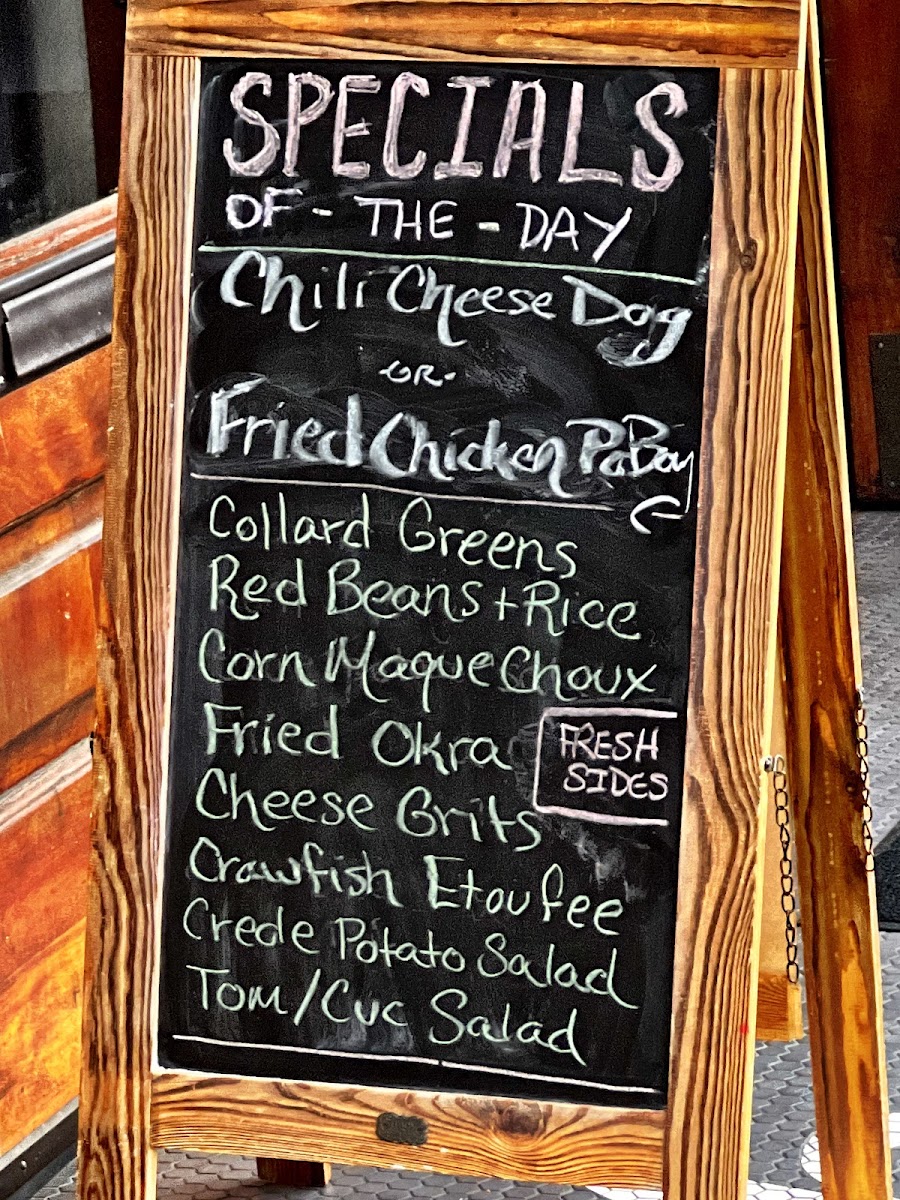 SPECIALS
OF - THE - DAY
Chili Cheese Dog
-OR-
Fried Chicken PoBoy
Collard Greens
Red Beans + Rice
Corn Maque Choux
Fried Okra
FRESH
SIDES
Cheese Grits
Crawfish Etoufee
Creole Potato Salad
Tom/Cuc Salad